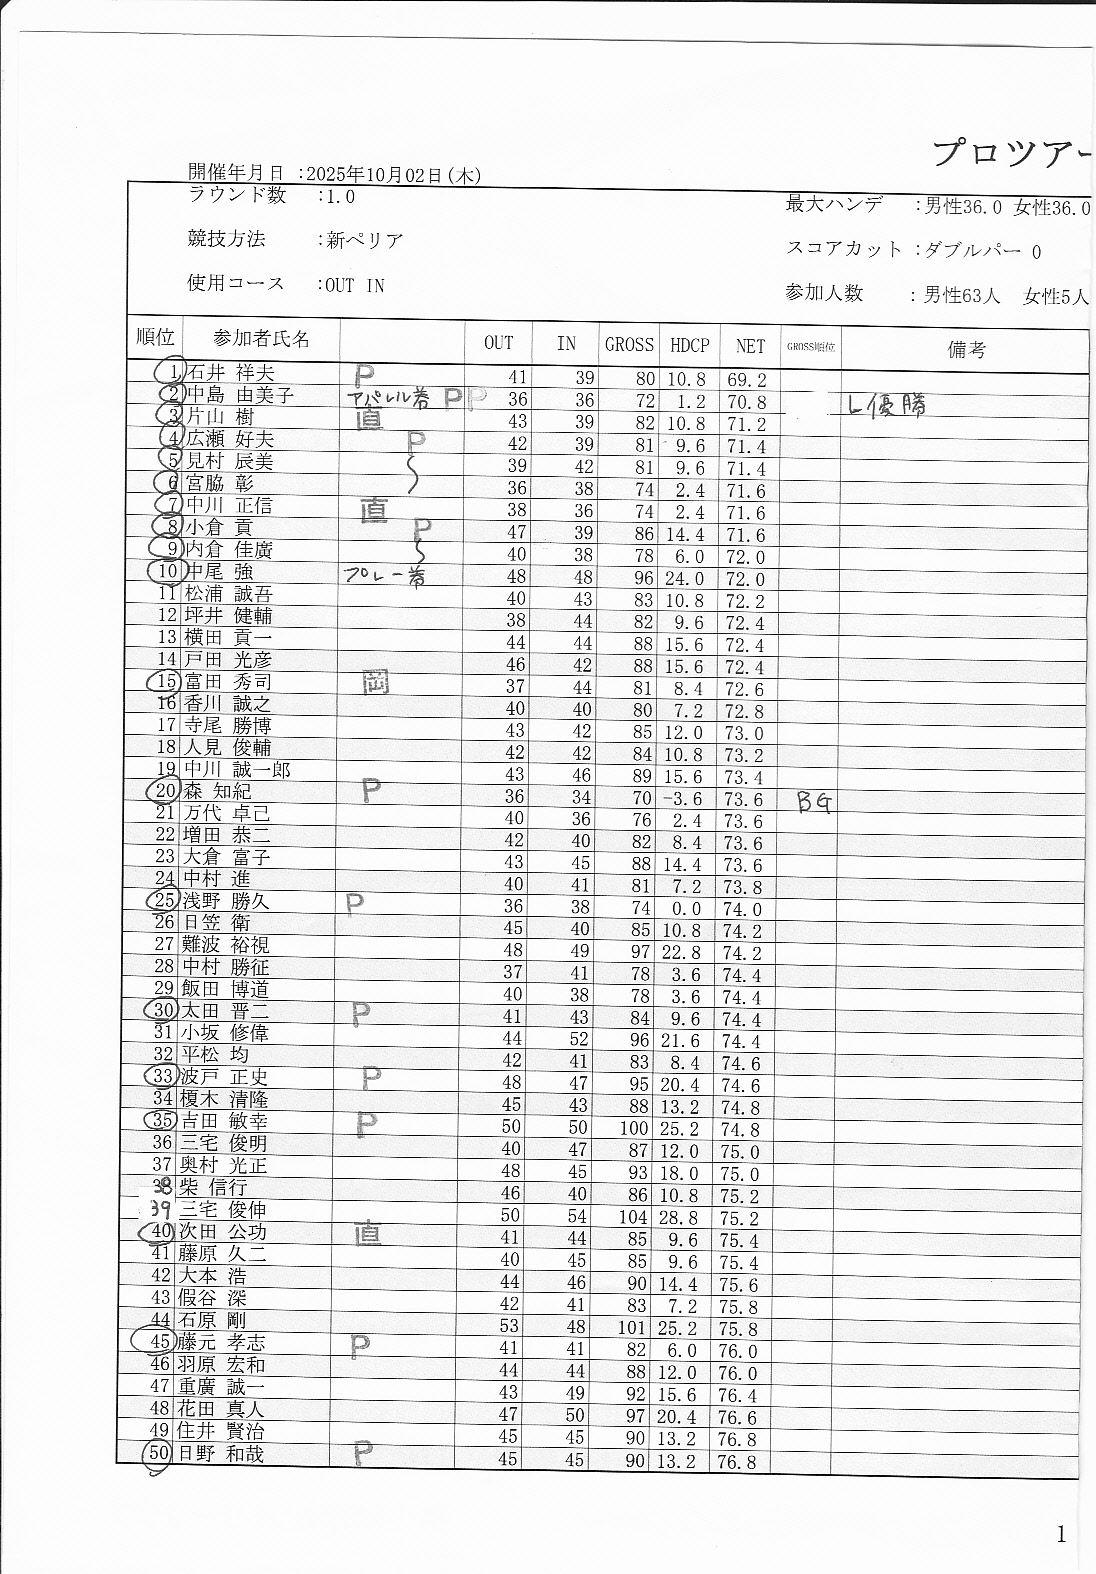 プロツアー
開催年月日 :2025年10月02日(木)
ラウンド数 :1.0 最大ハンデ :男性36.0 女性36.0
競技方法 :新ペリア スコアカット :ダブルパー 0
使用コース :OUT IN 参加人数 :男性63人 女性5人
順位 参加者氏名 OUT IN GROSS HDCP NET GROSS順位 備考
1 石井 祥夫 P 41 39 80 10.8 69.2
2 中島 由美子 アパレル券 P P 36 36 72 1.2 70.8 L優勝
3 片山 樹 直 43 39 82 10.8 71.2
4 広瀬 好夫 P 42 39 81 9.6 71.4
5 見村 辰美 39 42 81 9.6 71.4
6 宮脇 彰 36 38 74 2.4 71.6
7 中川 正信 直 38 36 74 2.4 71.6
8 小倉 貢 P 47 39 86 14.4 71.6
9 内倉 佳廣 40 38 78 6.0 72.0
10 中尾 強 プレー券 48 48 96 24.0 72.0
11 松浦 誠吾 40 43 83 10.8 72.2
12 坪井 健輔 38 44 82 9.6 72.4
13 横田 貢一 44 44 88 15.6 72.4
14 戸田 光彦 46 42 88 15.6 72.4
15 富田 秀司 岡 37 44 81 8.4 72.6
16 香川 誠之 40 40 80 7.2 72.8
17 寺尾 勝博 43 42 85 12.0 73.0
18 人見 俊輔 42 42 84 10.8 73.2
19 中川 誠一郎 43 46 89 15.6 73.4
20 森 知紀 P 36 34 70 -3.6 73.6 BG
21 万代 卓己 40 36 76 2.4 73.6
22 増田 恭二 42 40 82 8.4 73.6
23 大倉 富子 43 45 88 14.4 73.6
24 中村 進 40 41 81 7.2 73.8
25 浅野 勝久 P 36 38 74 0.0 74.0
26 日笠 衛 45 40 85 10.8 74.2
27 難波 裕視 48 49 97 22.8 74.2
28 中村 勝征 37 41 78 3.6 74.4
29 飯田 博道 40 38 78 3.6 74.4
30 太田 晋二 P 41 43 84 9.6 74.4
31 小坂 修偉 44 52 96 21.6 74.4
32 平松 均 42 41 83 8.4 74.6
33 波戸 正史 P 48 47 95 20.4 74.6
34 榎木 清隆 45 43 88 13.2 74.8
35 吉田 敏幸 P 50 50 100 25.2 74.8
36 三宅 俊明 40 47 87 12.0 75.0
37 奥村 光正 48 45 93 18.0 75.0
38 柴 信行 46 40 86 10.8 75.2
39 三宅 俊伸 50 54 104 28.8 75.2
40 次田 公功 直 41 44 85 9.6 75.4
41 藤原 久二 40 45 85 9.6 75.4
42 大本 浩 44 46 90 14.4 75.6
43 假谷 深 42 41 83 7.2 75.8
44 石原 剛 53 48 101 25.2 75.8
45 藤元 孝志 P 41 41 82 6.0 76.0
46 羽原 宏和 44 44 88 12.0 76.0
47 重廣 誠一 43 49 92 15.6 76.4
48 花田 真人 47 50 97 20.4 76.6
49 住井 賢治 45 45 90 13.2 76.8
50 日野 和哉 P 45 45 90 13.2 76.8
1